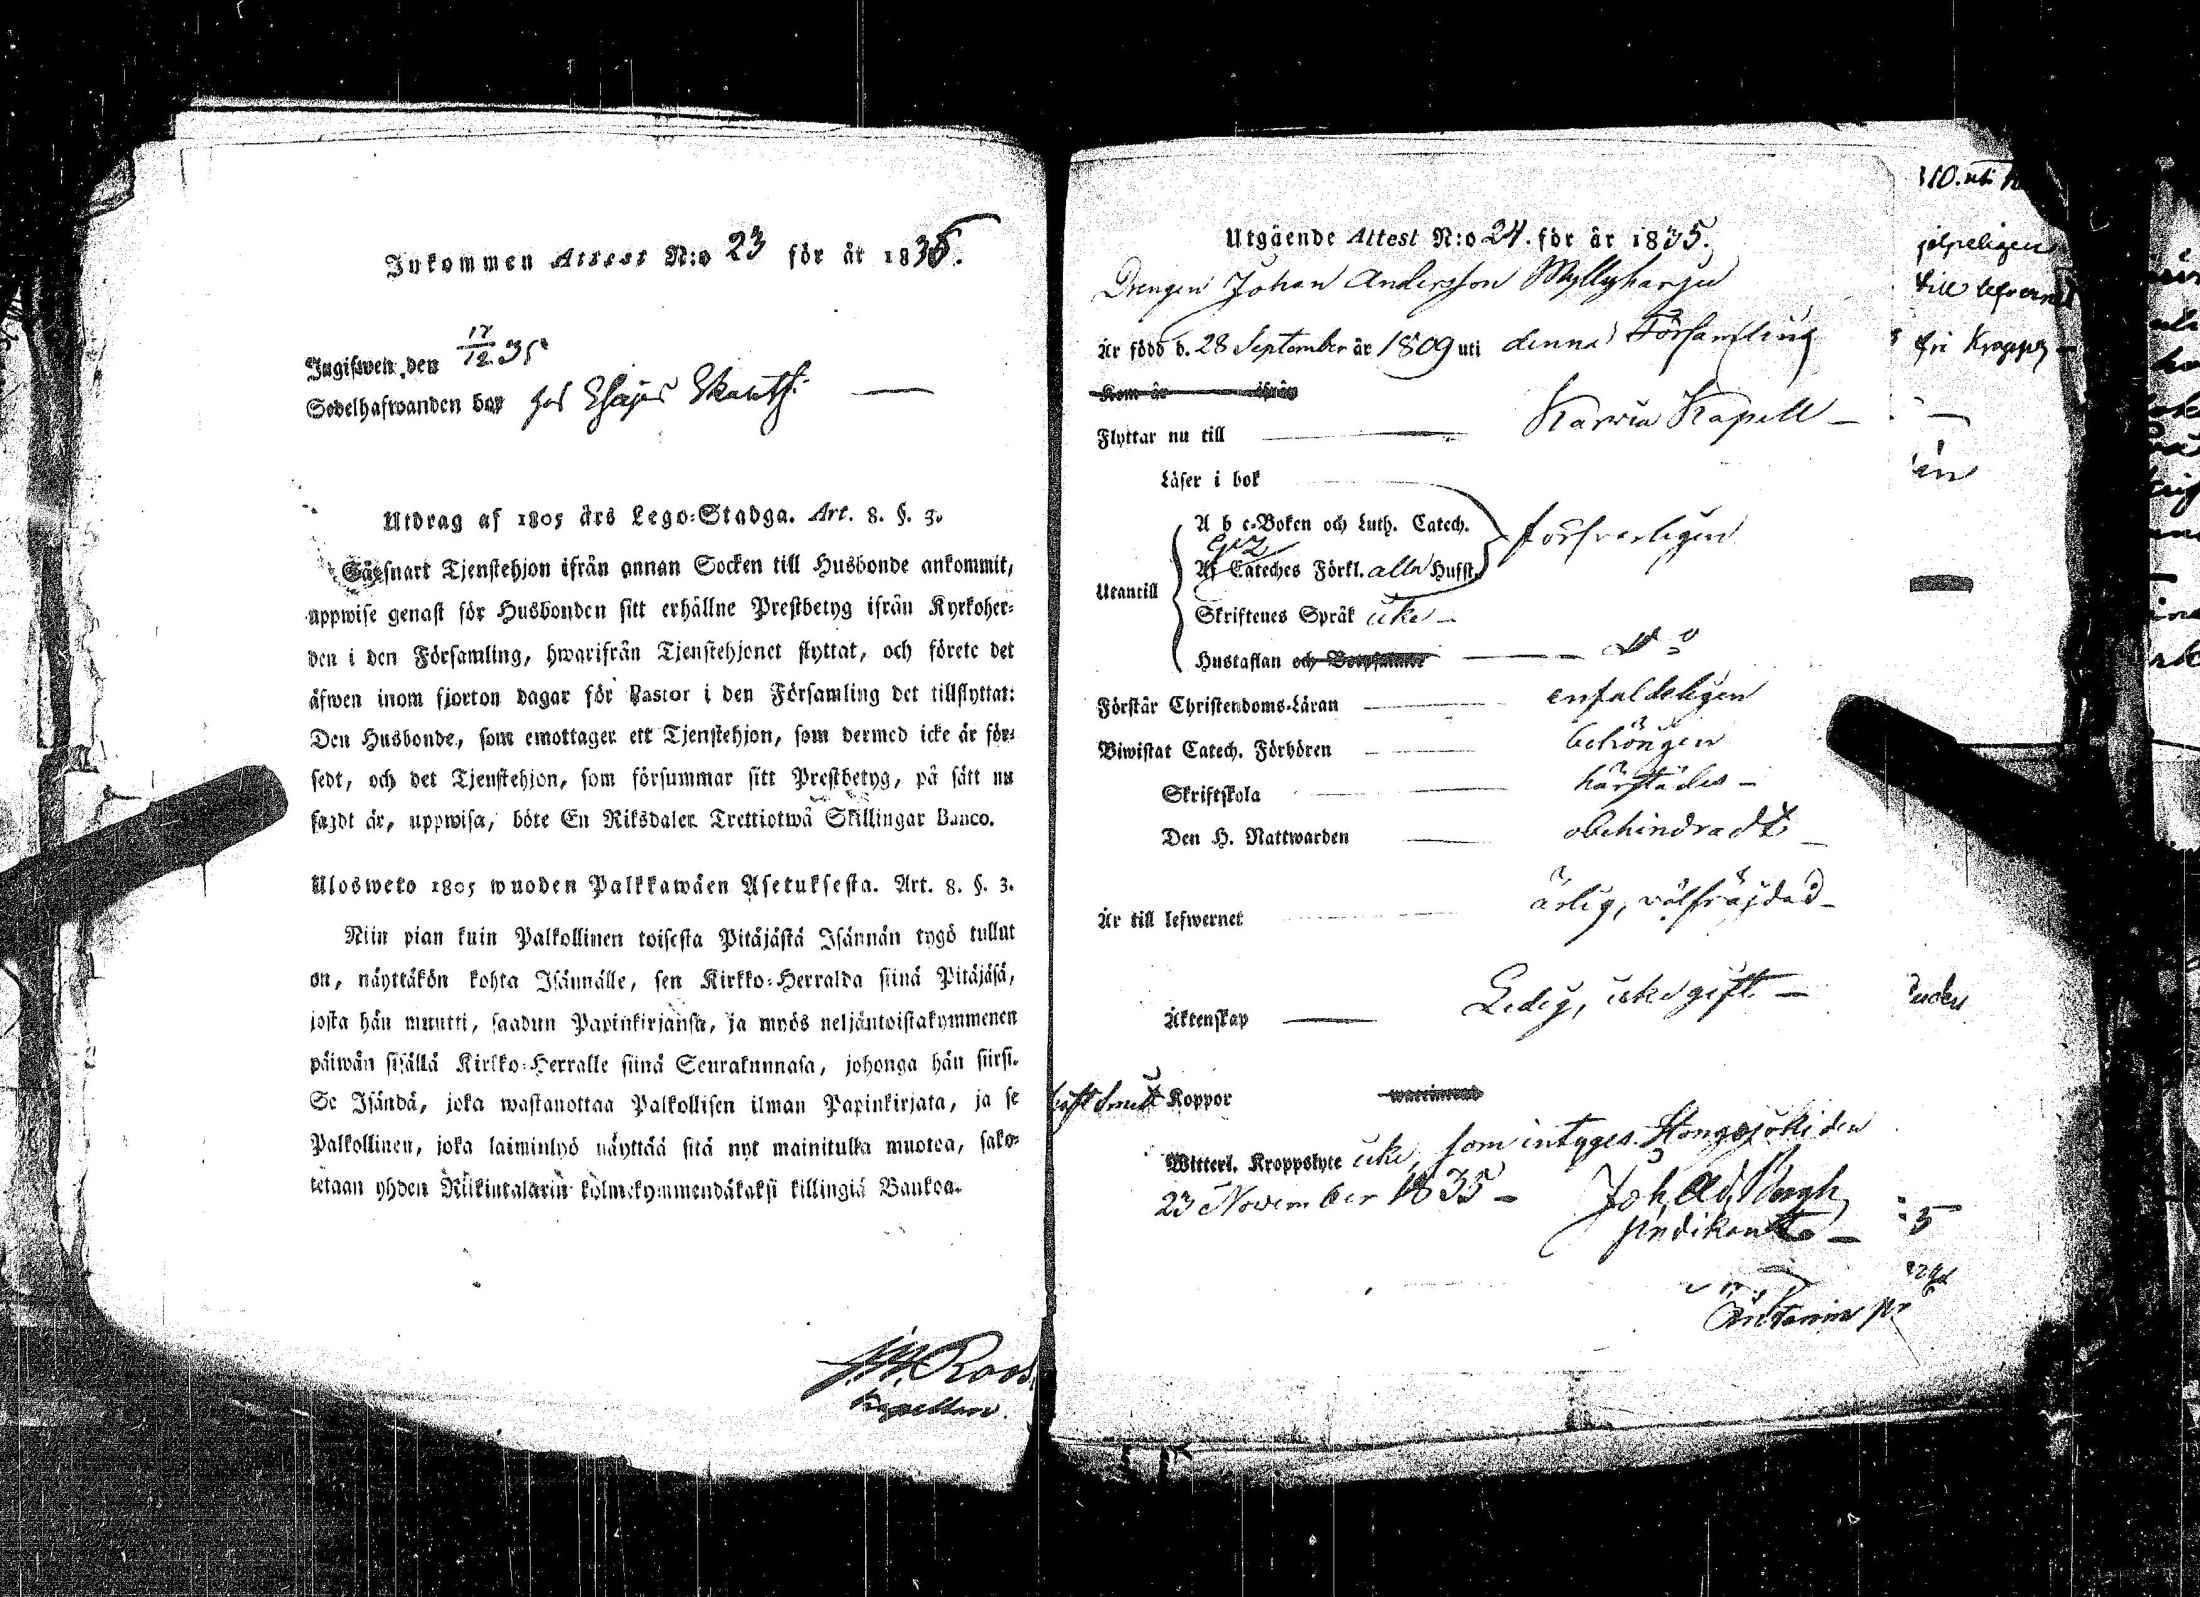 Inkommen Attest N:o 23 för år 1835.
Ingifwen den 17/12 35
Sedelhafwanden bor hos Esajas
Utdrag af 1805 års Lego-Stadga. Art. 8. §. 3.
Såsnart Tjenstehjon ifrån annan Socken till Husbonde ankommit,
uppwise genast för Husbonden sitt erhållne Prestbetyg ifrån Kyrkoher-
den i den Församling, hwarifrån Tjenstehjonet flyttat, och förete det
äfwen inom fjorton dagar för Pastor i den Församling det tillflyttat:
Den Husbonde, som emottager ett Tjenstehjon, som dermed icke är för-
sedt, och det Tjenstehjon, som försummar sitt Prestbetyg, på sätt nu
sagdt är, uppwisa, böte En Riksdaler Trettiotwå Skillingar Banco.
Ulosweto 1805 wuoden Palkkawäen Asetuksesta. Art. 8. §. 3.
Niin pian kuin Palkollinen toisesta Pitäjästä Isännän tygö tullut
on, näyttäkön kohta Isännälle, sen Kirkko-Herralda siinä Pitäjäsä,
josta hän muutti, saadun Papinkirjansa, ja myös neljäntoistakymmenen
päiwän sisällä Kirkko-Herralle siinä Seurakunnasa, johonga hän siirsi.
Se Isändä, joka wastanottaa Palkollisen ilman Papinkirjata, ja se
Palkollinen, joka laiminlyö näyttää sitä nyt mainitulla muotoa, sako-
tetaan yhden Riikintalarin kolmekymmendäkaksi killingiä Bankoa.
Roos
Kapellan.
Utgående Attest N:o 24. för år 1835.
Drengen Johan Andersson Myllyharju
Är född d. 28 September år 1809 uti denna Församling
Kom år ifrån
Flyttar nu till Karvia Kapell
Läser i bok
Utantill
A b c-Boken och Luth. Catech. försvarligen
Af Cateches Förkl. alla Hufst.
Skriftenes Språk icke
Hustaflan och
Förstår Christendoms-Läran enfaldeligen
Biwistat Catech. Förhören behörigen
Skriftskola härstädes
Den H. Nattwarden obehindradt
Är till lefwernet ärlig, välfräjdad
Äktenskap Ledig, icke gift
Haft Koppor
Witterl. Kroppslyte icke, som intygas Hongojoki den
23 November 1835 Joh. Ad. Bergh
110. uti
till lefvernet
fri Kropps